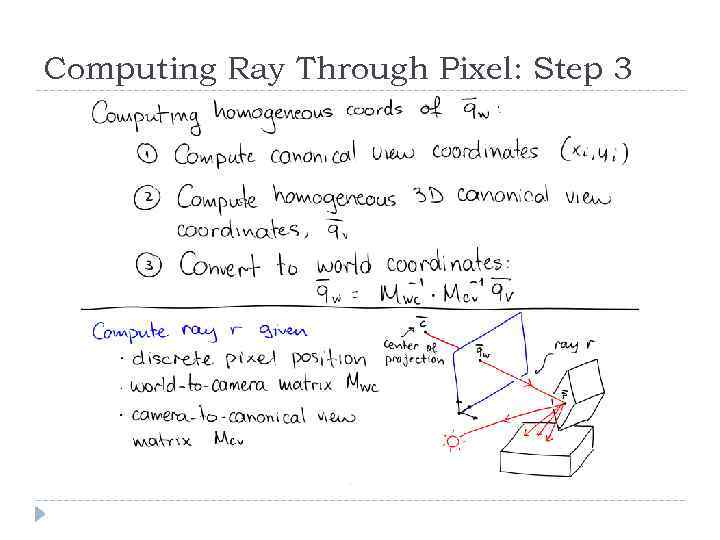 Computing Ray Through Pixel: Step 3
Computing homogeneous coords of q̄w:
① Compute canonical view coordinates (xi,yi)
② Compute homogeneous 3D canonical view
coordinates, q̄v
③ Convert to world coordinates:
q̄w = Mwc⁻¹ · Mcv⁻¹ q̄v
Compute ray r given
· discrete pixel position
· world-to-camera matrix Mwc
· camera-to-canonical view
matrix Mcv
c̄
center of
projection
q̄w
ray r
p̄